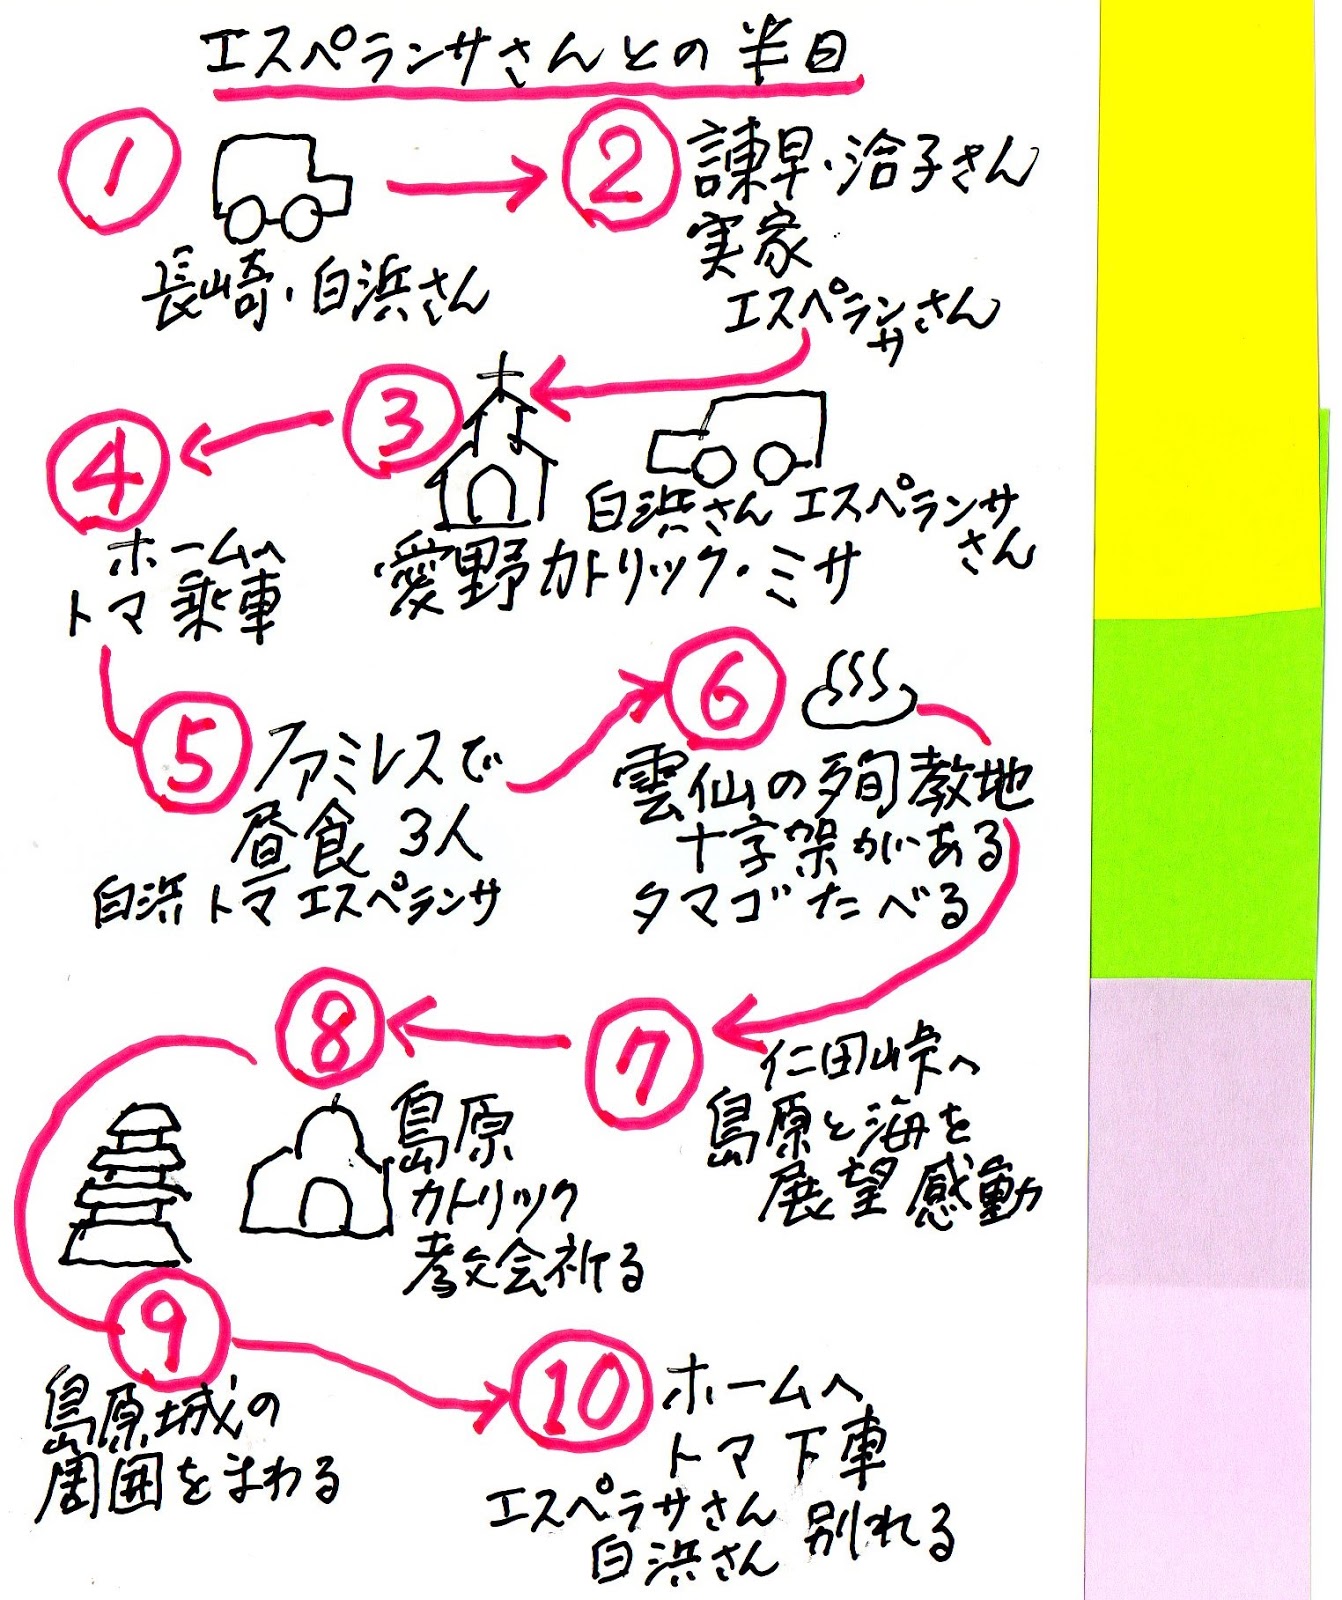 エスペランサさんとの半日
1
長崎・白浜さん
2
諫早・治子さん
実家
エスペランサさん
3
白浜さん エスペランサさん
愛野カトリック・ミサ
4
ホームへ
トマ乗車
5
ファミレスで
昼食 3人
白浜 トマ エスペランサ
6
雲仙の殉教地
十字架がある
タマゴたべる
7
仁田峠へ
島原と海を
展望 感動
8
島原
カトリック
教会祈る
9
島原城の
周囲をまわる
10
ホームへ
トマ 下車
エスペラサさん
白浜さん 別れる